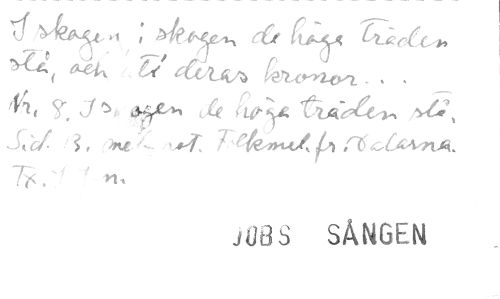 I skogen i skogen de höga träden
stå, och uti deras kronor...
Nr. 8. I skogen de höga träden stå.
Sid. 13. mel. not. Folkmel. fr. Dalarna.
Tx.
JOBS SÅNGEN